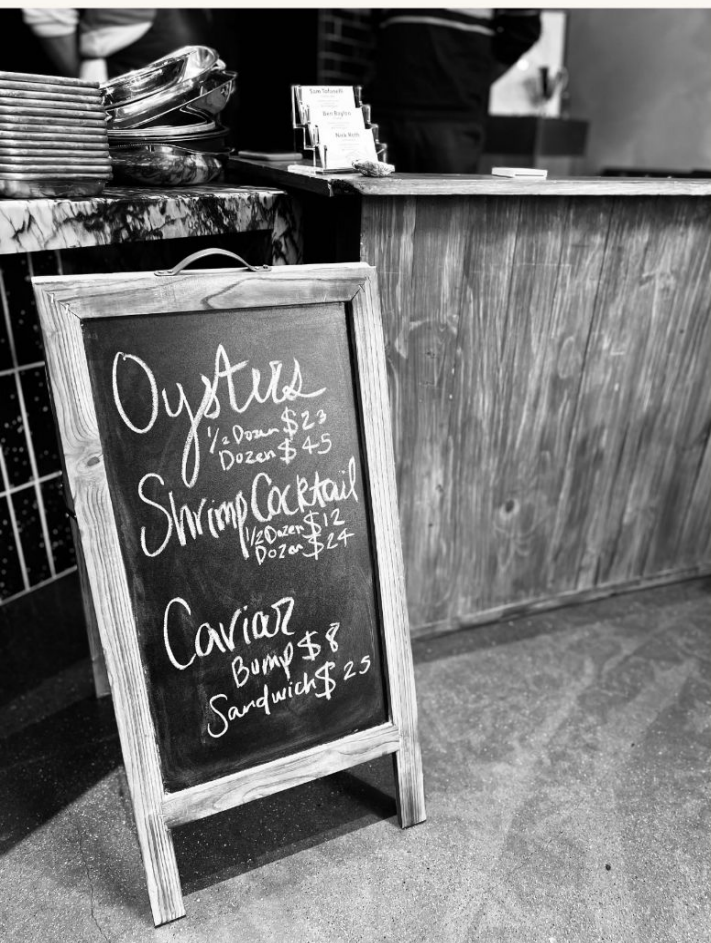 Oysters
1/2 Dozen $23
Dozen $45
Shrimp Cocktail
1/2 Dozen $12
Dozen $24
Caviar
Bump $8
Sandwich $25
Ben Roglin
Nick Roth